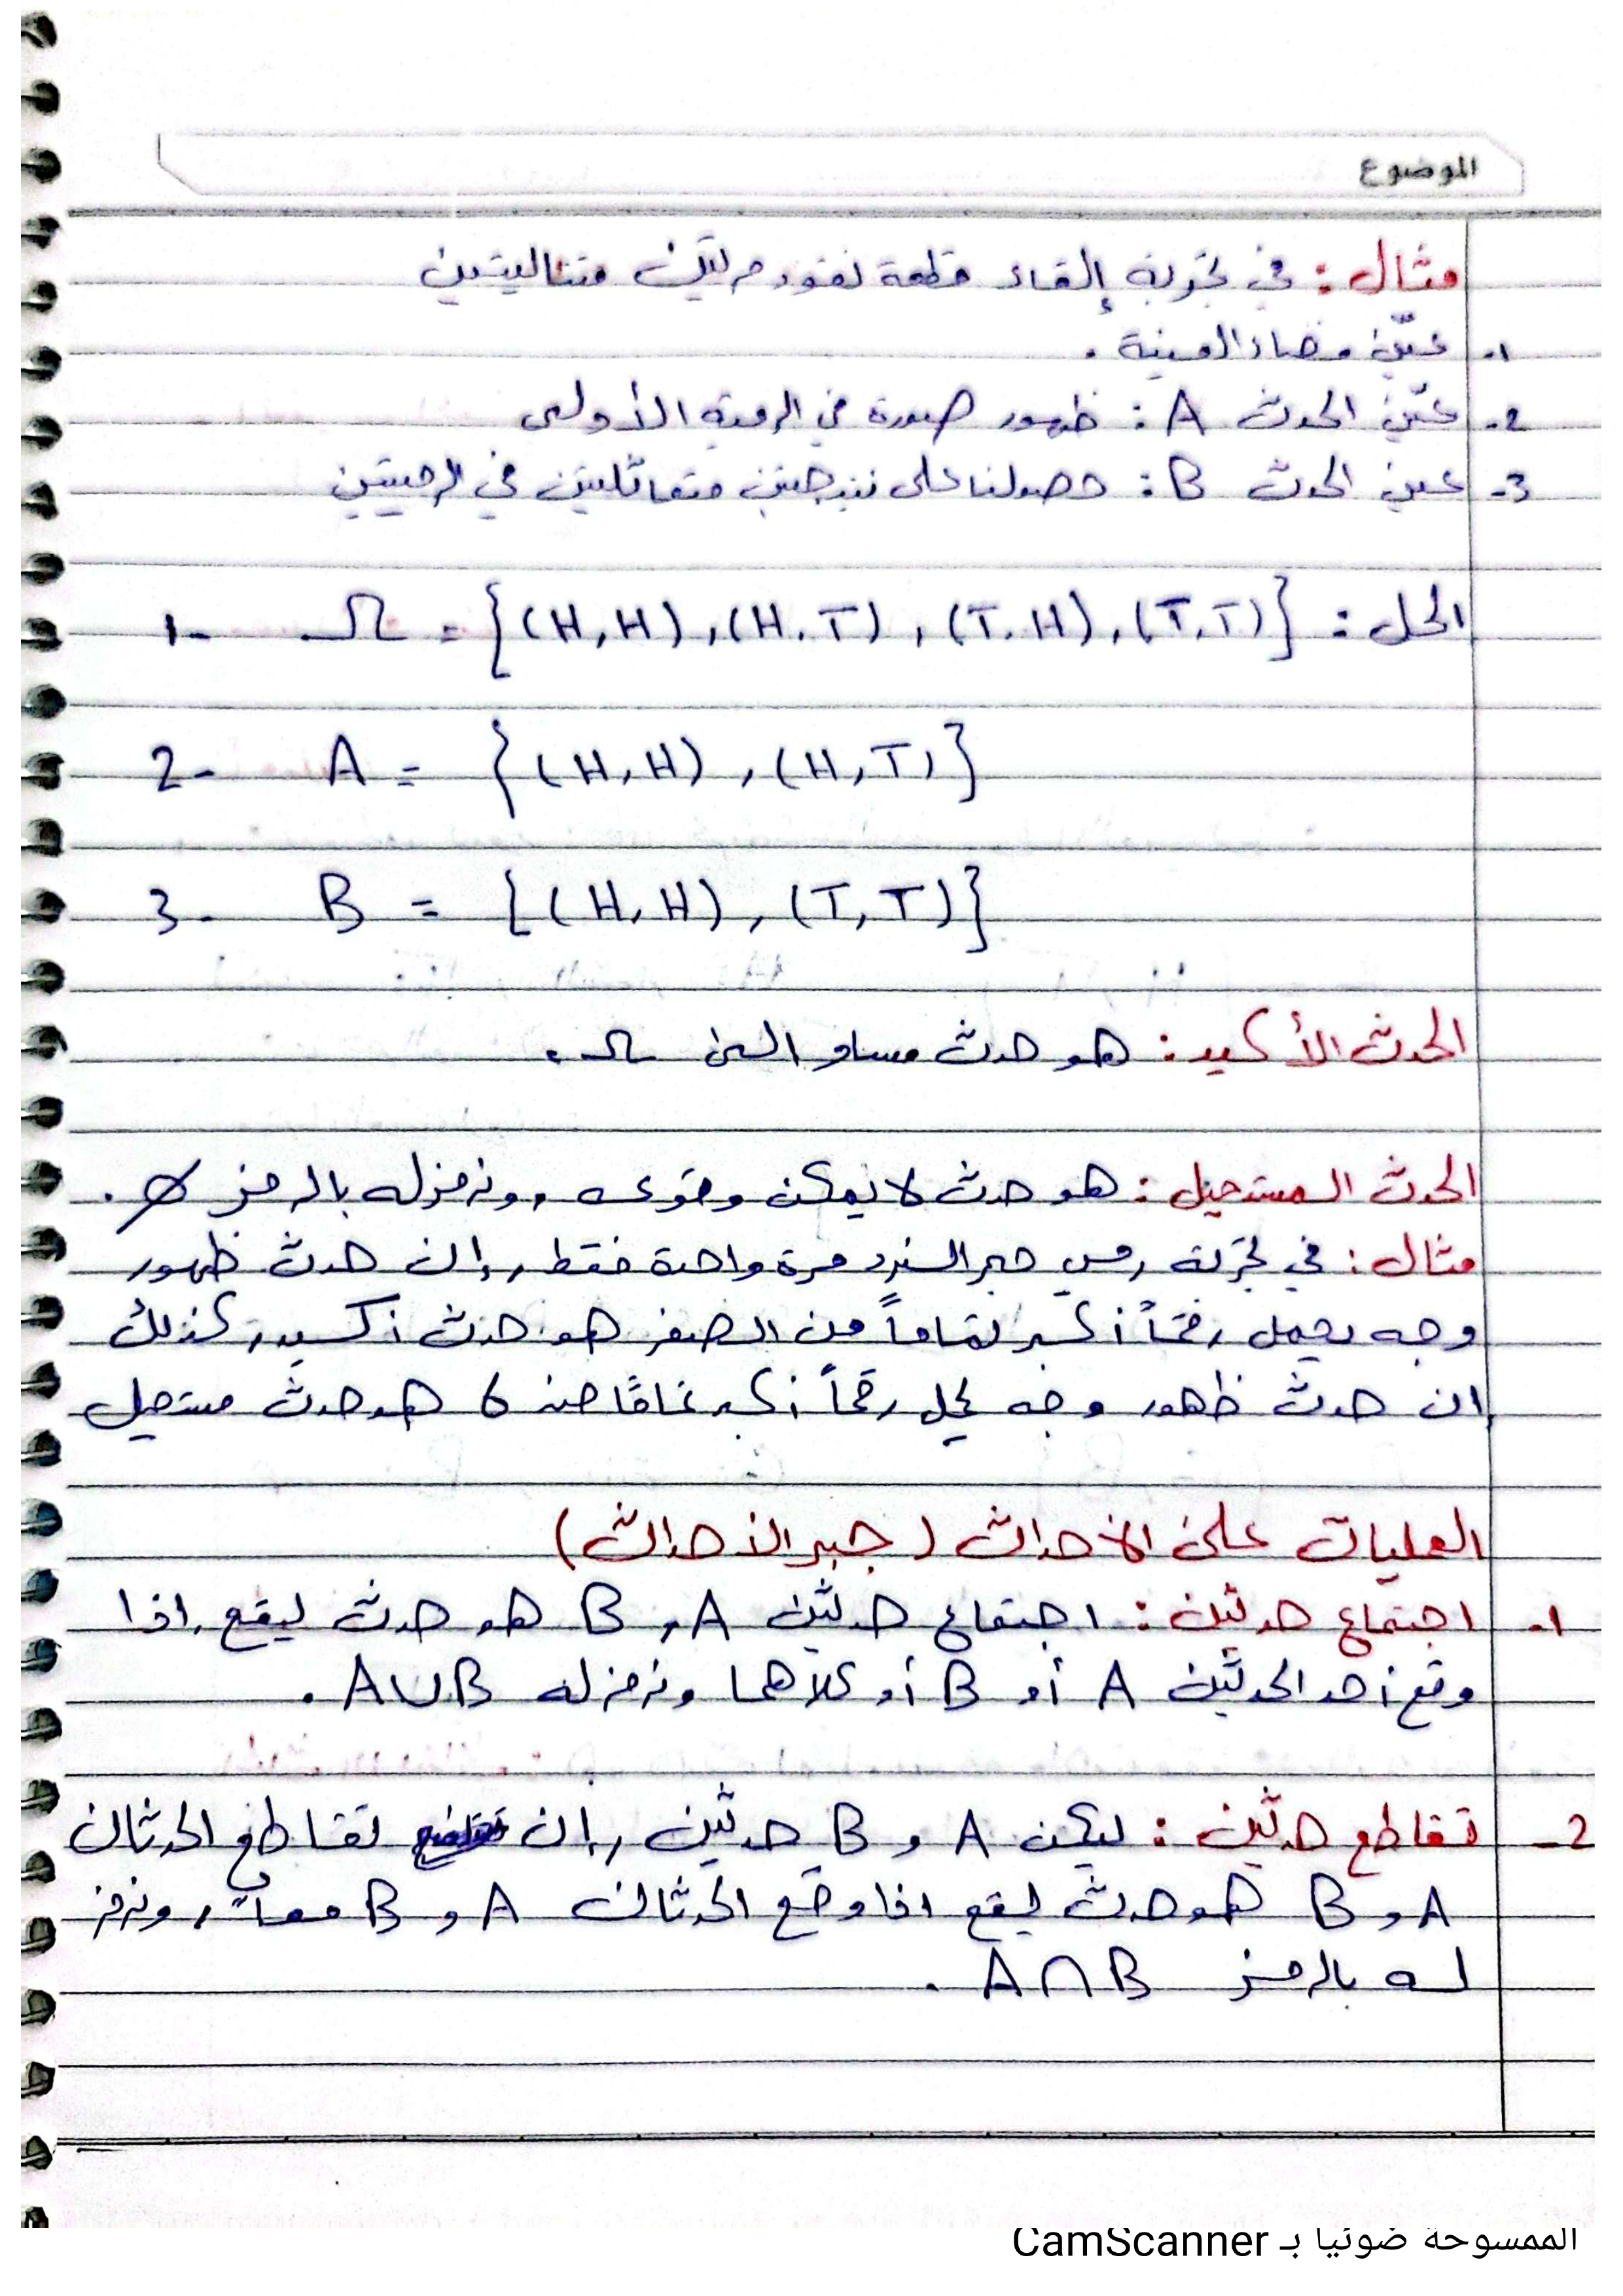 الموضوع
مثال: في تجربة إلقاء قطعة نقود مرتين متتاليتين
1- عيّن فضاء العينة.
2- عيّن الحدث A: ظهور صورة في الرمية الأولى
3- عين الحدث B: حصولنا على نتيجتين متماثلتين في الرميتين
الحل: 1- Ω = {(H,H), (H,T), (T,H), (T,T)}
2- A = {(H,H), (H,T)}
3- B = {(H,H), (T,T)}
الحدث الأكيد: هو حدث مساو إلى Ω.
الحدث المستحيل: هو حدث لا يمكن وقوعه، ونرمز له بالرمز ∅.
مثال: في تجربة رمي حجر النرد مرة واحدة فقط، إن حدث ظهور
وجه يحمل رقماً أكبر تماماً من الصفر هو حدث أكيد، كذلك
إن حدث ظهور وجه يحمل رقماً أكبر تمامًا من 6 هو حدث مستحيل
العمليات على الأحداث (جبر الأحداث)
1- اجتماع حدثين: اجتماع حدثين A، B هو حدث ليقع إذا
وقع أحد الحدثين A أو B أو كلاهما ونرمز له A∪B.
2- تقاطع حدثين: ليكن A و B حدثين، إن تقاطع الحدثان
A و B هو حدث ليقع اذا وقع الحدثان A و B معاً، ونرمز
له بالرمز A∩B.
الممسوحة ضوئيا بـ CamScanner